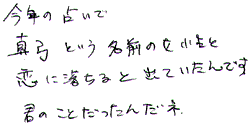 今年の占いで
真弓という名前の女性と
恋に落ちると出ていたんです
君のことだったんだネ.